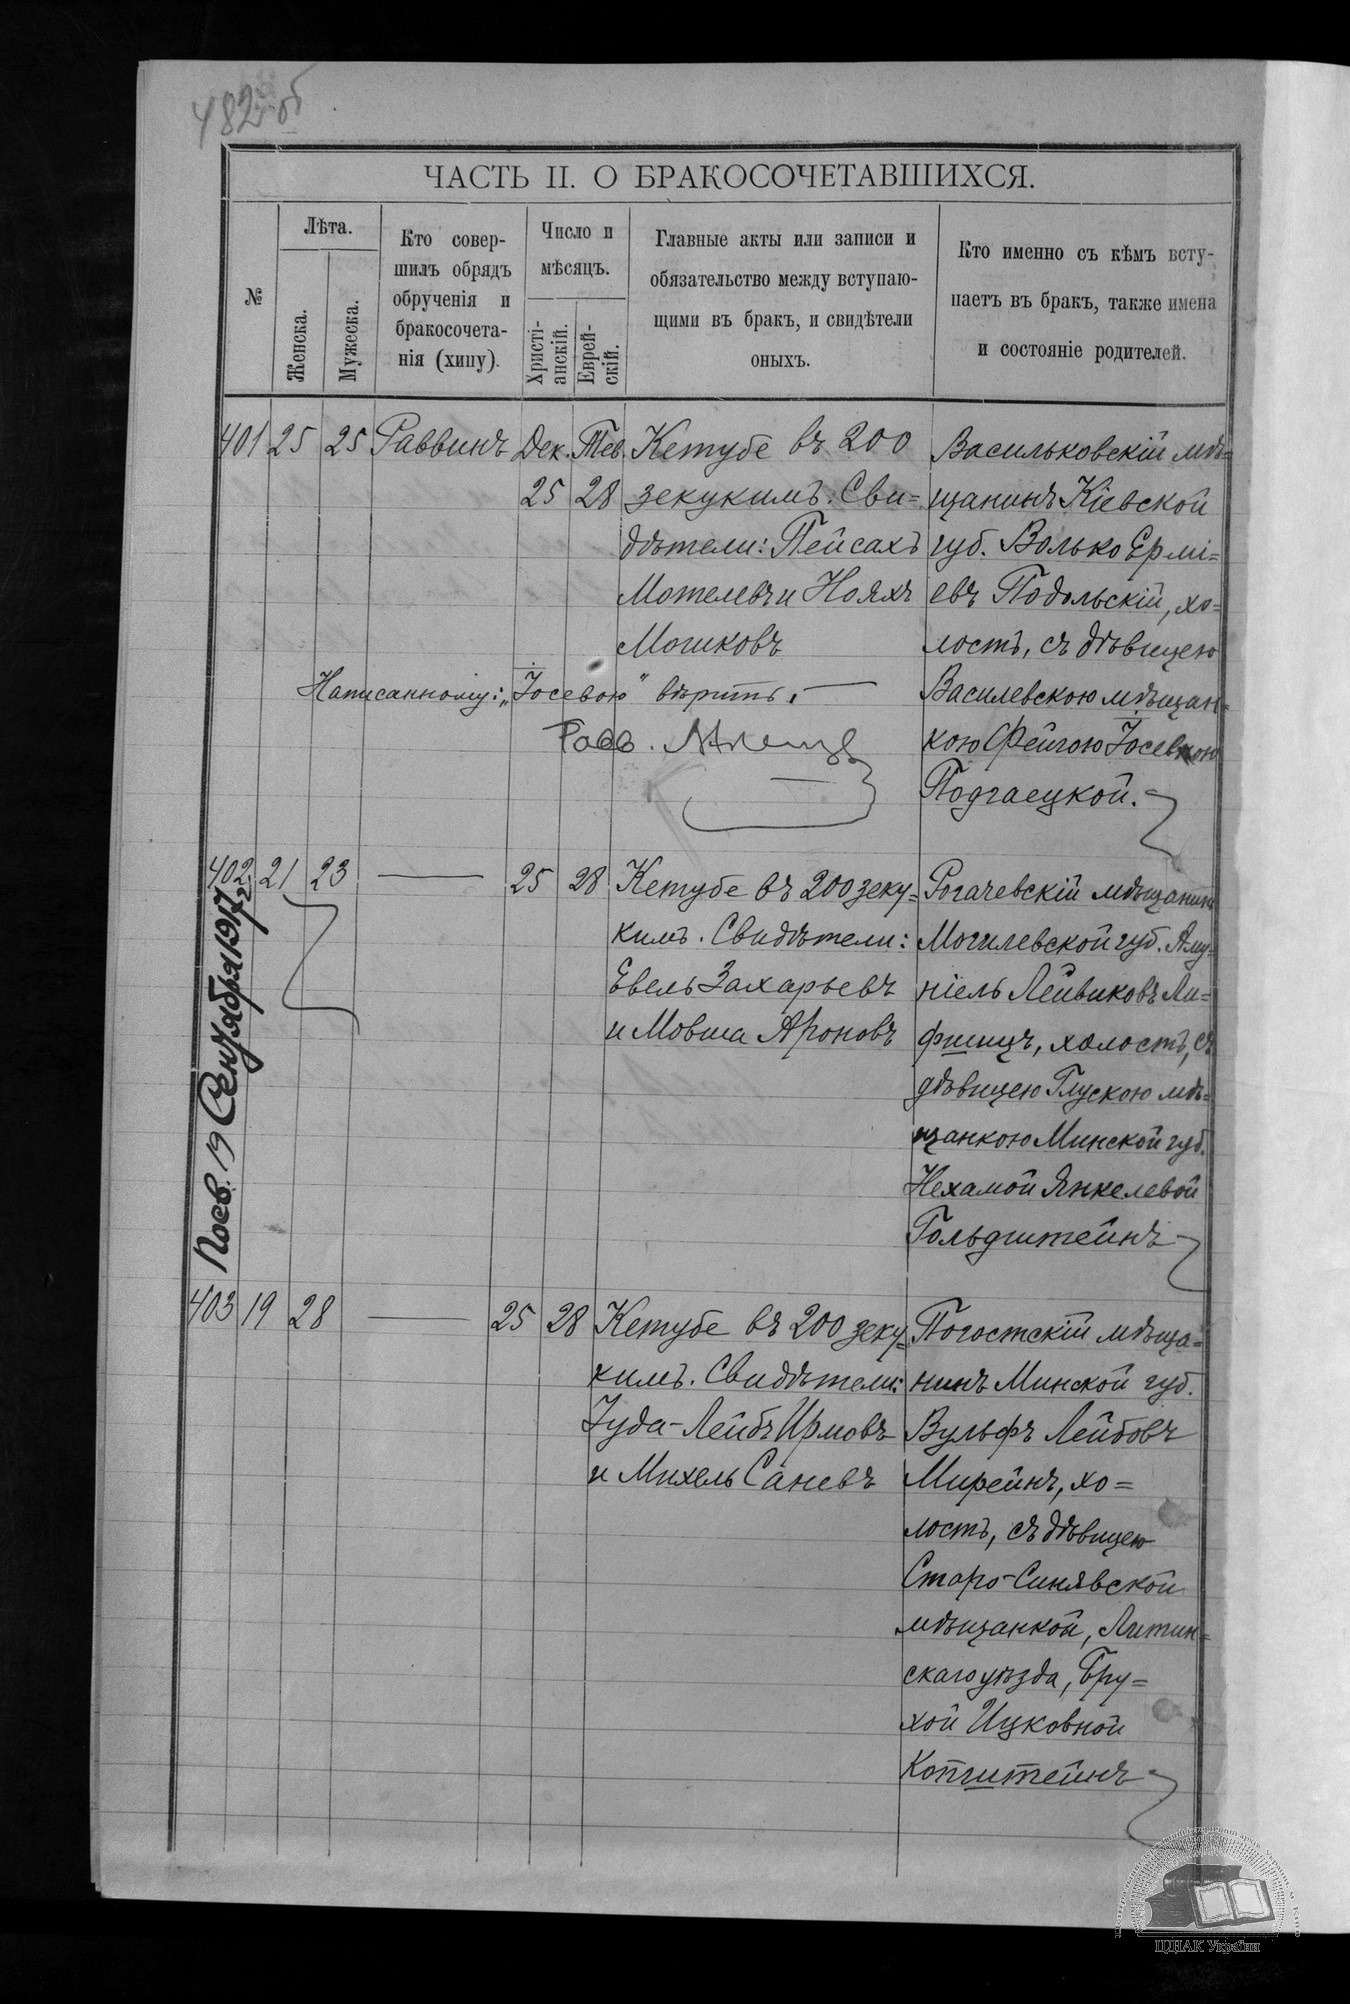 482 об
ЧАСТЬ II. О БРАКОСОЧЕТАВШИХСЯ.
№
Лѣта.
Женска.
Мужеска.
Кто совер-
шилъ обрядъ
обрученія и
бракосочета-
нія (хипу).
Число и
мѣсяцъ.
Христі-
анскій.
Еврей-
скій.
Главные акты или записи и
обязательство между вступаю-
щими въ бракъ, и свидѣтели
оныхъ.
Кто именно съ кѣмъ всту-
паетъ въ бракъ, также имена
и состояніе родителей.
401 25 25 Раввинъ Дек. Тев.
25 28
Кетубе въ 200
зекукимъ. Сви=
дѣтели: Пейсахъ
Мотелевъ и Нояхъ
Мошковъ
Васильковскій мѣ=
щанинъ Кіевской
губ. Волько Ермі=
евъ Подольскій, хо=
лостъ, съ дѣвицею
Василевскою мѣщан=
кою Фейгою Іосевою
Подгаецкой.
Написанному: „Іосевою" вѣрить.
Равв.
402 21 23 — 25 28
Кетубе въ 200 зеку=
кимъ. Свидѣтели:
Евель Захарьевъ
и Мовша Ароновъ
Рогачевскій мѣщанинъ
Могилевской губ. Аму=
ніель Лейвиковъ Ли=
фшицъ, холостъ, съ
дѣвицею Глускою мѣ=
щанкою Минской губ.
Нехамой Янкелевой
Гольдштейнъ
Посв. 19 Сентября 1917 г.
403 19 28 — 25 28
Кетубе въ 200 зеку=
кимъ. Свидѣтели:
Іуда-Лейбъ Ирмовъ
и Михель Саневъ
Погостскій мѣща=
нинъ Минской губ.
Вульфъ Лейбовъ
Мирейнъ, хо=
лостъ, съ дѣвицею
Старо-Синявской
мѣщанкой, Литин=
скаго уѣзда, Бру=
хой Ицковной
Копштейнъ
ЦДІАК України